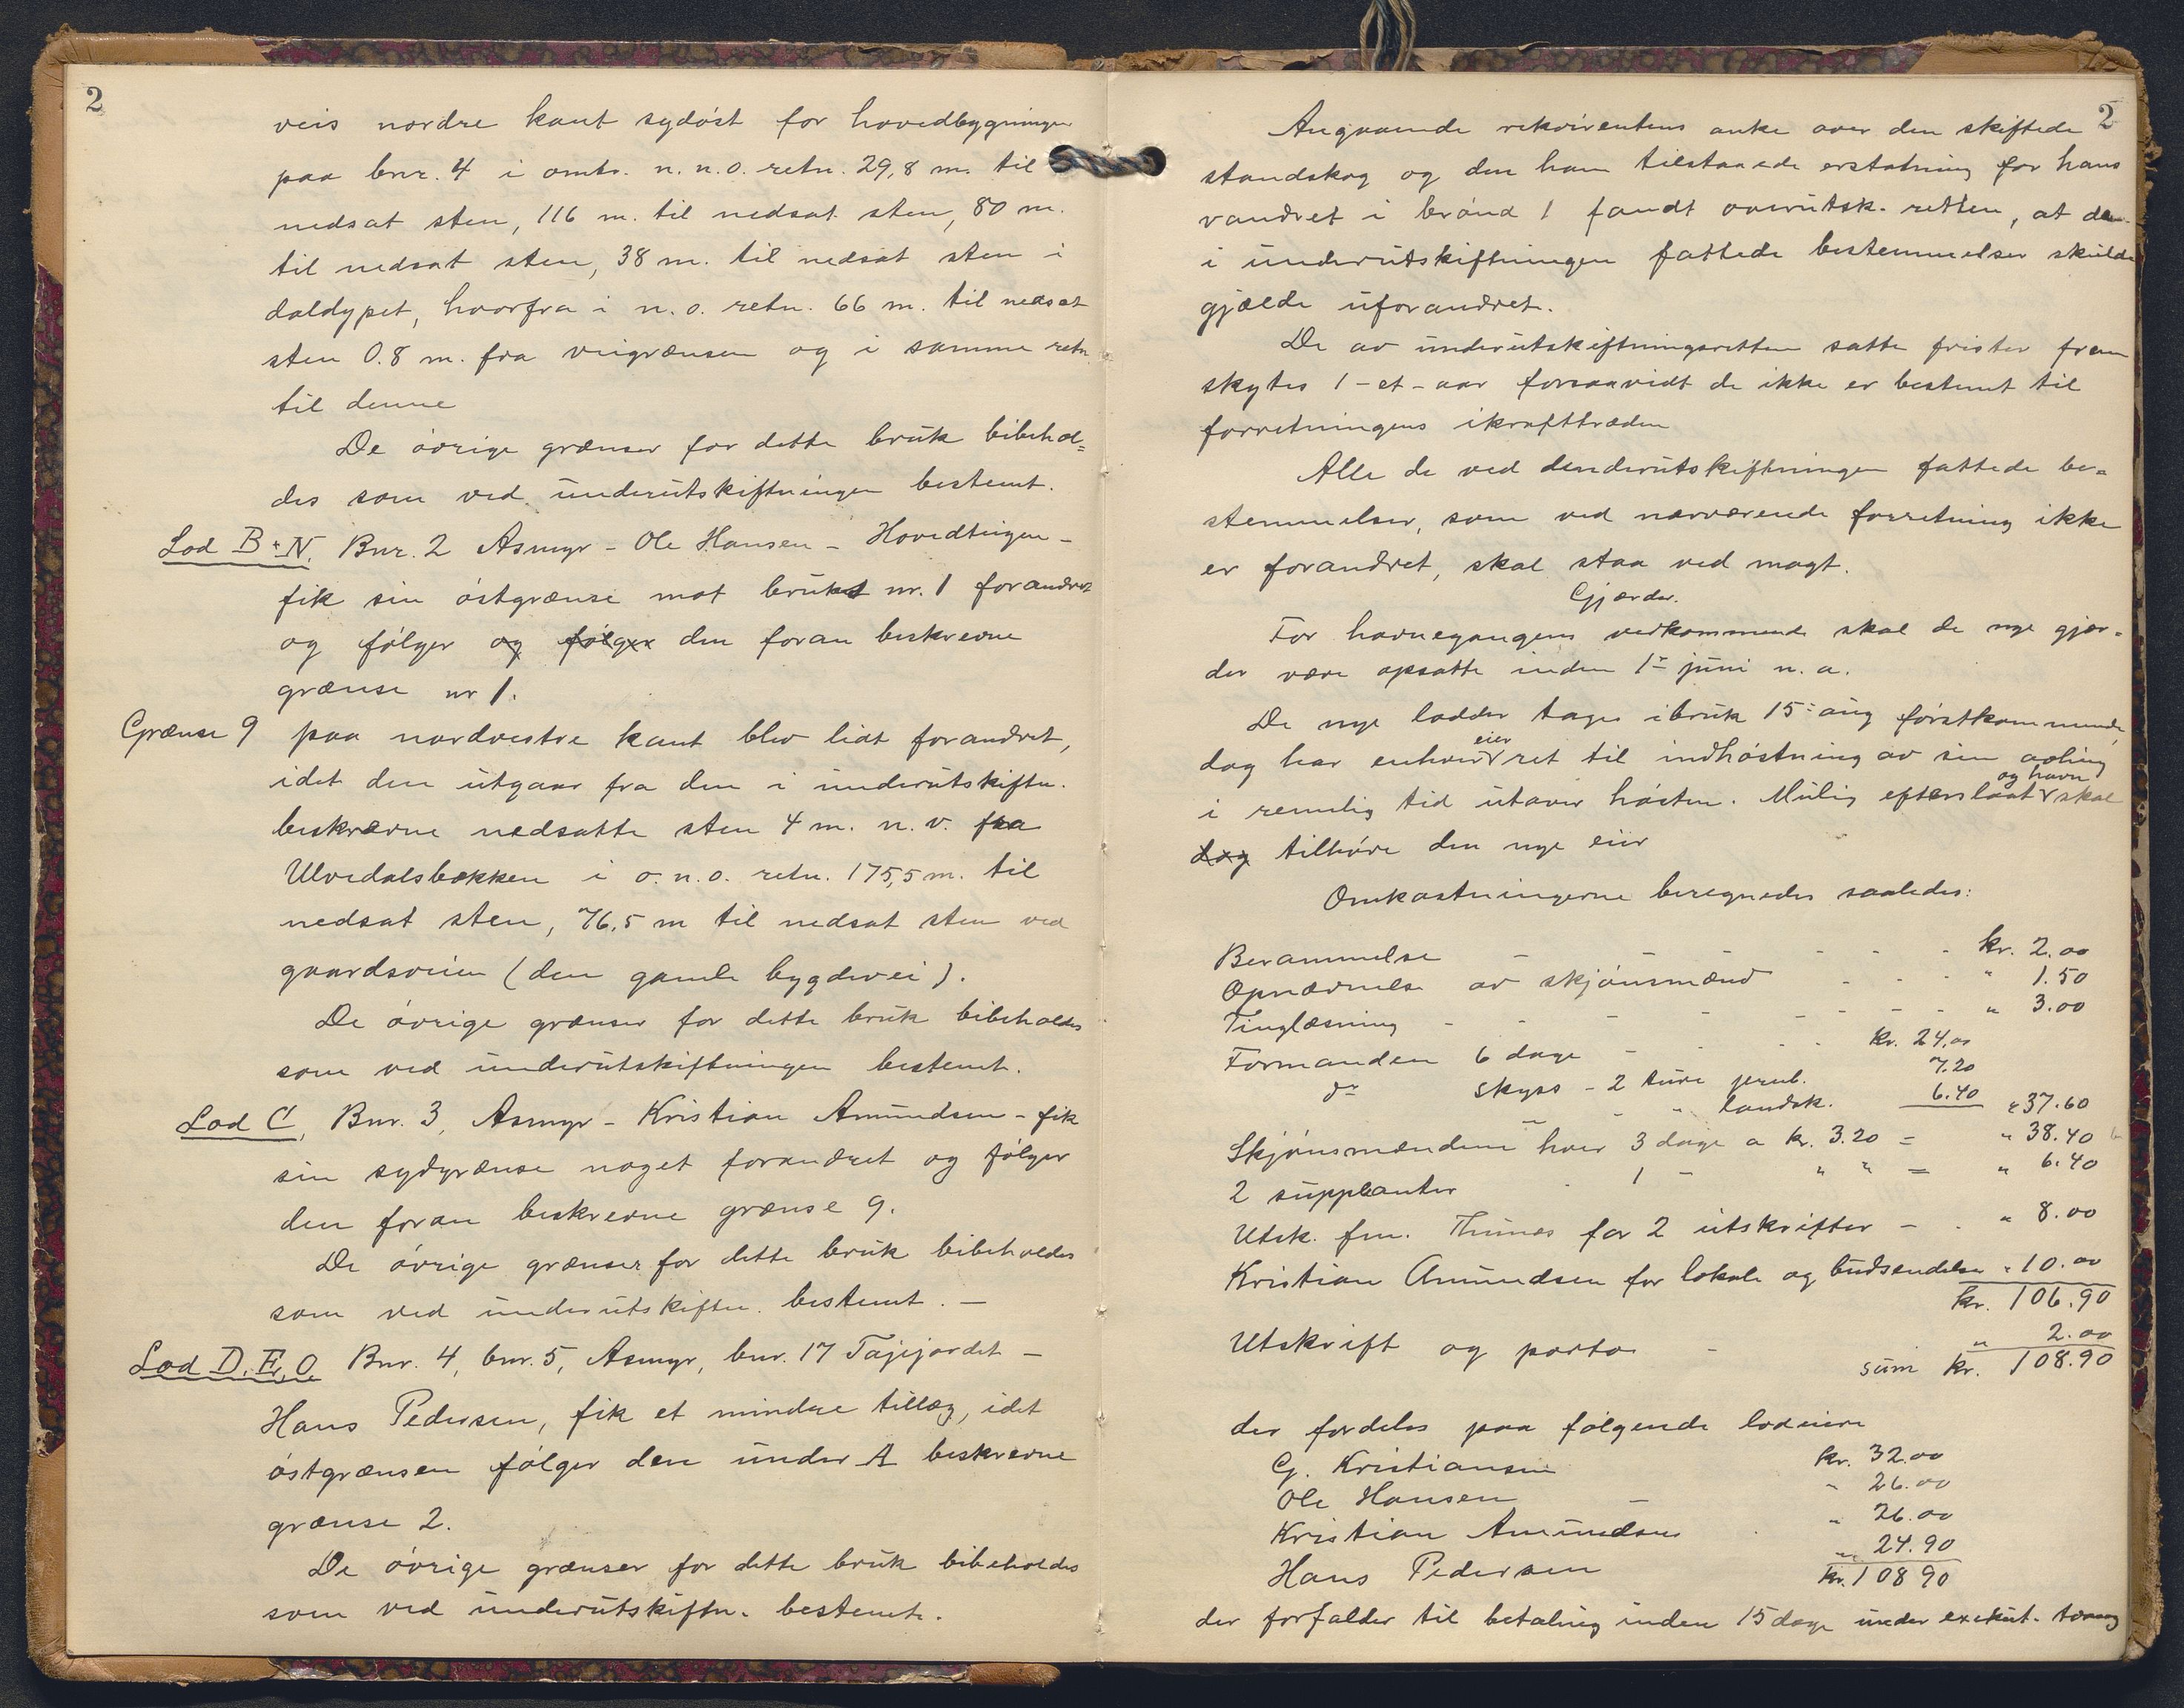 2
veis nordre kant sydöst for hovedbygningen
paa bnr. 4 i omtr. n. n. o. retn. 29,8 m. til
nedsat sten, 116 m. til nedsat sten, 80 m.
til nedsat sten, 38 m. til nedsat sten i
daldypet, hvorfra i n. o. retn. 66 m. til nedsat
sten 0.8 m. fra veigrænsen og i samme retn
til denne
De övrige grænser for dette bruk bibehol=
des som ved underutskiftningen bestemt.
Lod B+N. Bnr. 2 Asmyr - Ole Hansen - Hovedteigen -
fik sin östgrænse mot bruket nr. 1 forandret
og fölger og fölger den foran beskrevne
grænse nr 1.
Grænse 9 paa nordvestre kant blev lidt forandret,
idet den utgaar fra den i underutskiftn.
beskrevne nedsatte sten 4 m. n. v. fra
Ulvedalsbækken i o. n. o. retn. 175,5 m. til
nedsat sten, 76,5 m til nedsat sten ved
gaardsveien (den gamle bygdevei).
De övrige grænser for dette bruk bibeholdes
som ved underutskiftningen bestemt.
Lod C, Bnr. 3, Asmyr - Kristian Amundsen - fik
sin sydgrænse noget forandret og fölger
den foran beskrevne grænse 9.
De övrige grænser for dette bruk bibeholdes
som ved underutskiftn. bestemt. -
Lod D, E, O Bnr. 4, bnr. 5, Asmyr, bnr. 17 Tajejordet -
Hans Pedersen, fik et mindre tillæg, idet
östgrænsen fölger den under A beskrevne
grænse 2.
De övrige grænser for dette bruk bibeholdes
som ved underutskiftn. bestemt.
2
Angaaende rekvirentens anke over den skiftede
standskog og den ham tilstaaede erstatning for hans
vandret i brönd 1 fandt overutsk. retten, at de
i underutskiftningen fattede bestemmelser skulde
gjælde uforandret.
De av underutskiftningsretten satte frister frem
skytes 1 - et - aar forsaavidt de ikke er bestemt til
forretningens ikrafttræden
Alle de ved underutskiftningen fattede be=
stemmelser, som ved nærværende forretning ikke
er forandret, skal staa ved magt.
Gjærder.
For havnegangens vedkommende skal de nye gjær=
der være opsatte inden 1ste juni n. a.
De nye lodder tages i bruk 15: aug förstkommende,
dog har enhver eier ret til indhöstning av sin avling
i rimelig tid utover hösten. Mulig efterslaat og havn skal
dog tilhöre den nye eier
Omkostningerne beregnedes saaledes:
Berammelse - - - - - kr. 2.00
Opnævnelse av skjönsmænd - - - " 1.50
Tinglæsning - - - - - - - " 3.00
Formanden 6 dage - - - kr. 24.00
do skyss - 2 ture jernb. 7.20
- " landsk. 6.40 " 37.60
Skjönsmændene hver 3 dage a kr. 3.20 = " 38.40
2 supplanter - 1 - " " = " 6.40
Utsk. fm. Thunes for 2 utskrifter - - " 8.00
Kristian Amundsen for lokale og budsendelse " 10.00
kr. 106.90
Utskrift og porto - " 2.00
sum kr. 108.90
der fordeles paa følgende lodeiere
G. Kristiansen kr. 32.00
Ole Hansen - " 26.00
Kristian Amundsen " 26.00
Hans Pedersen " 24.90
kr. 108 90
der forfalder til betaling inden 15 dage under exekut. tvang